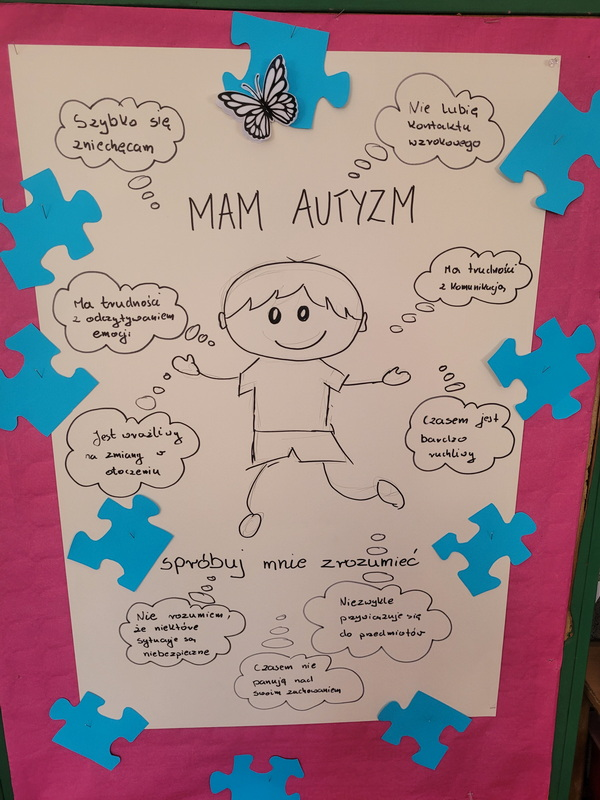 Szybko się
zniechęcam
Nie lubię
kontaktu
wzrokowego
MAM AUTYZM
Ma trudności
z odczytywaniem
emocji
Ma trudności
z komunikacją
Jest wrażliwy
na zmiany w
otoczeniu
Czasem jest
bardzo
ruchliwy
spróbuj mnie zrozumieć
Nie rozumiem,
że niektóre
sytuacje są
niebezpieczne
Niezwykle
przywiązuje się
do przedmiotów
Czasem nie
panują nad
swoim zachowaniem